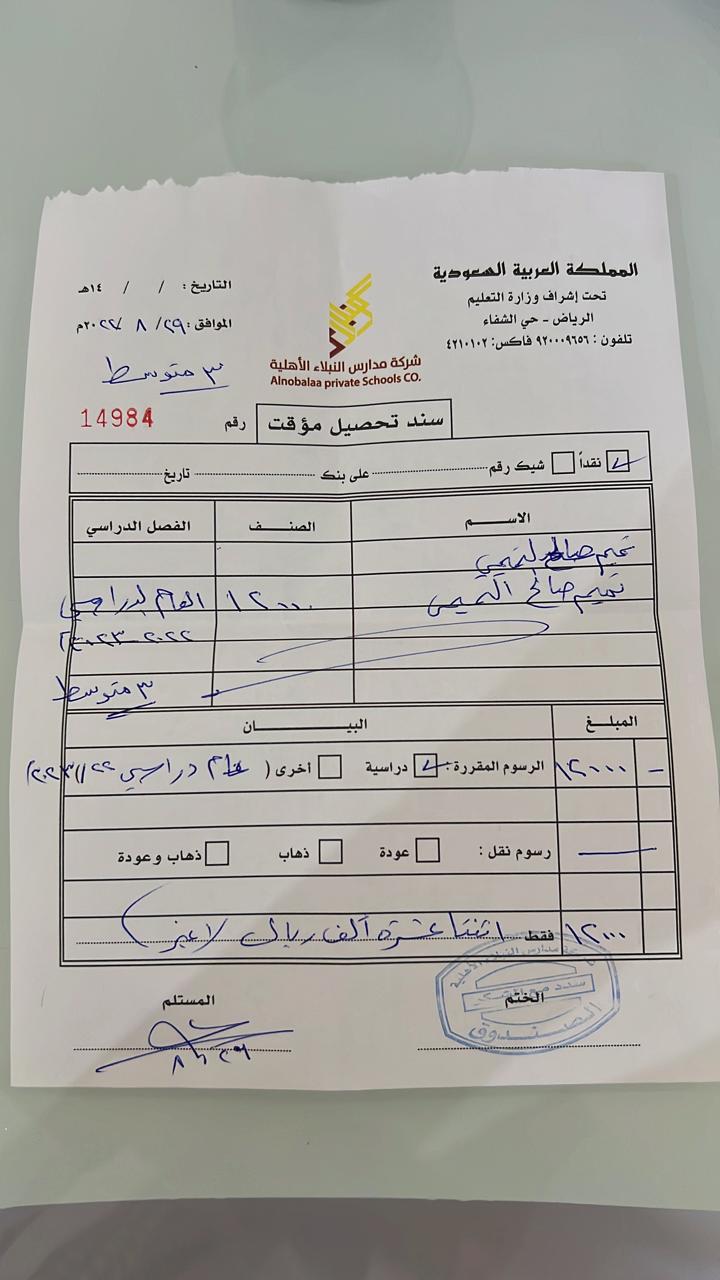 المملكة العربية السعودية
تحت إشراف وزارة التعليم
الرياض - حي الشفاء
تلفون : ٩٢٠٠٠٩٦٥٦ فاكس: ٤٢١٠١٠٢
شركة مدارس النبلاء الأهلية
Alnobalaa private Schools CO.
التاريخ : / / ١٤هـ
الموافق : ٢٩ / ٨ / ٢٠٢٢م
٣ متوسط
سند تحصيل مؤقت
رقم 14984
نقداً شيك رقم على بنك تاريخ
الاسم الصنف الفصل الدراسي
تميم صالح التميمي
تميم صالح التميمي ١٢٠٠٠ العام الدراسي
٢٠٢٢-٢٠٢٣
٣ متوسط
المبلغ البيان
١٢٠٠٠ الرسوم المقررة : دراسية أخرى ( عام دراسي ٢٢//٢٠٢٣)
رسوم نقل : عودة ذهاب ذهاب وعودة
١٢٠٠٠ فقط اثنتا عشرة ألف ريال لا غير
الختم المستلم
الصندوق
٨/٢٩